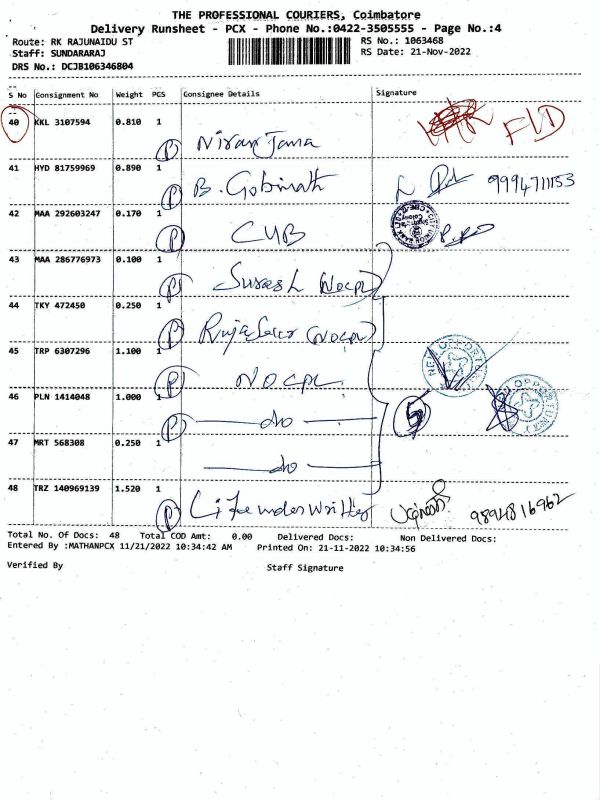 THE PROFESSIONAL COURIERS, Coimbatore
Delivery Runsheet - PCX - Phone No.:0422-3505555 - Page No.:4
Route: RK RAJUNAIDU ST RS No.: 1063468
Staff: SUNDARARAJ RS Date: 21-Nov-2022
DRS No.: DCJB106346804
S No Consignment No Weight PCS Consignee Details Signature
40 KKL 3107594 0.810 1 P Niranjana
41 HYD 81759969 0.890 1 P B. Gobinath 9994711153
42 MAA 292603247 0.170 1 P CUB
43 MAA 286776973 0.100 1 P Suresh (NOCPL)
44 TKY 472450 0.250 1 P (NOCPL)
45 TRP 6307296 1.100 1 P NOCPL
46 PLN 1414048 1.000 1 P do
47 MRT 568308 0.250 1 do
48 TRZ 140969139 1.520 1 P Life underwritter 9894816962
Total No. Of Docs: 48 Total COD Amt: 0.00 Delivered Docs: Non Delivered Docs:
Entered By :MATHANPCX 11/21/2022 10:34:42 AM Printed On: 21-11-2022 10:34:56
Verified By Staff Signature